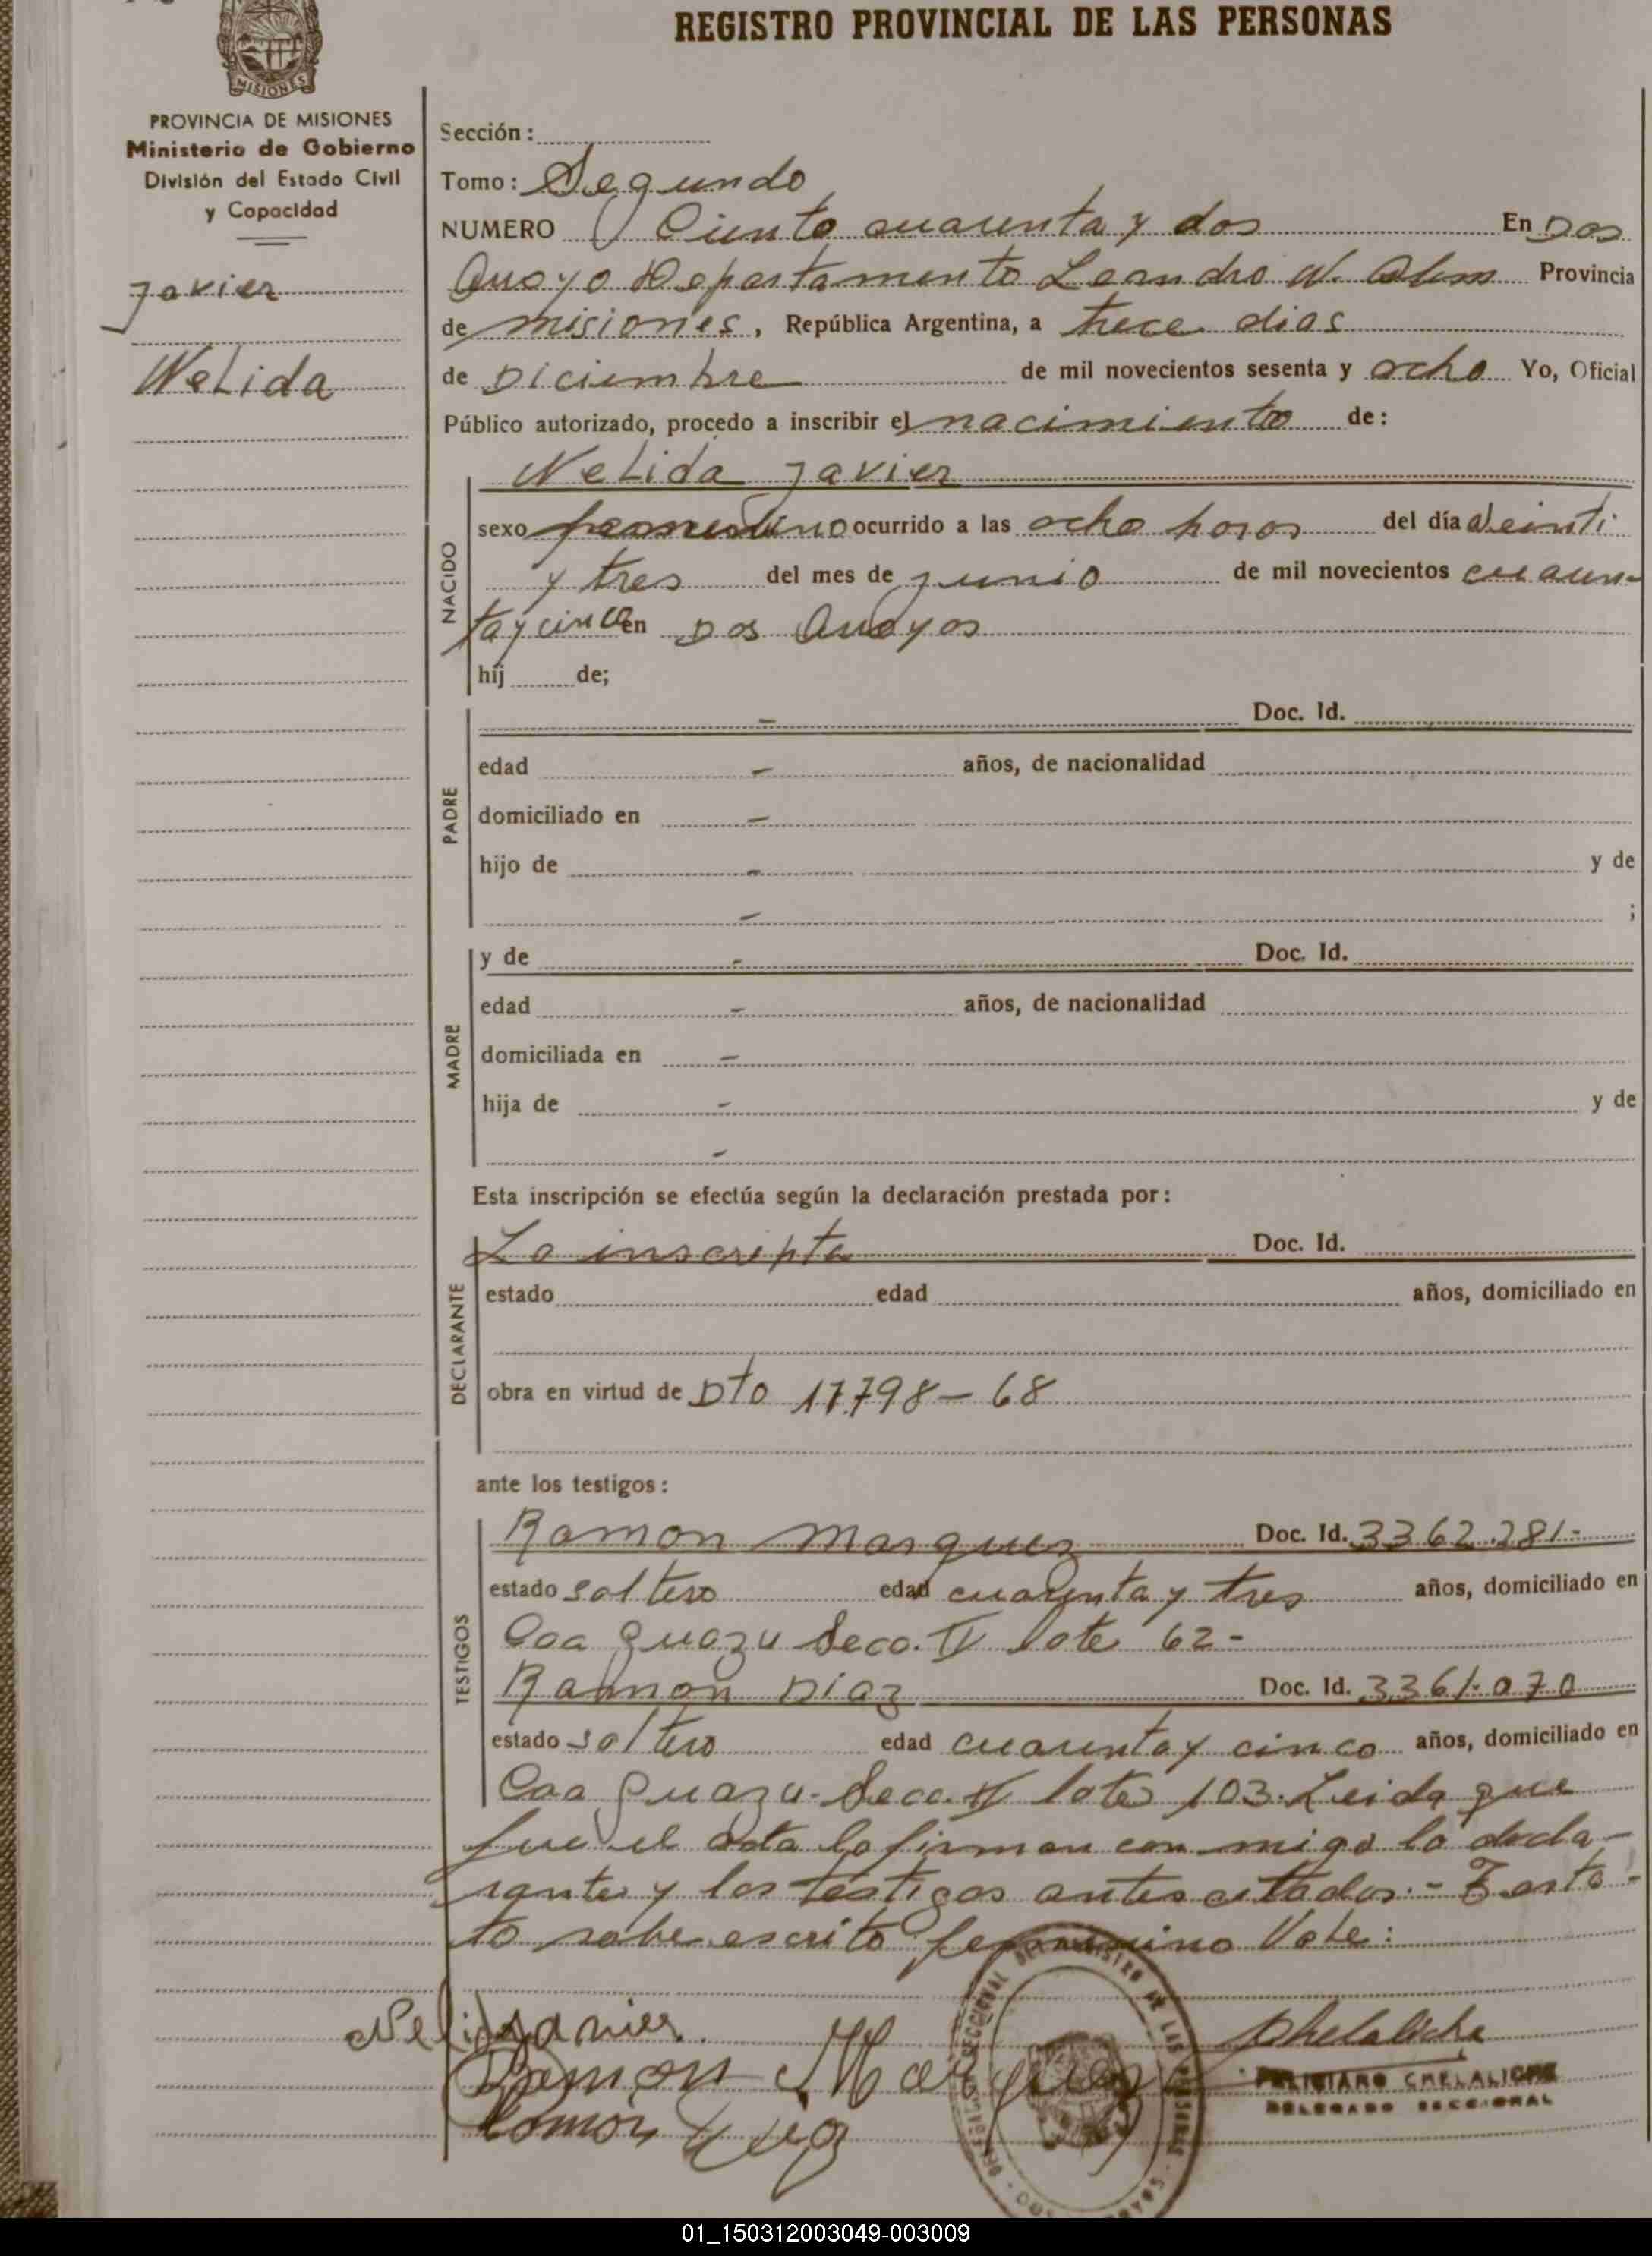 REGISTRO PROVINCIAL DE LAS PERSONAS
MISIONES
PROVINCIA DE MISIONES
Ministerio de Gobierno
División del Estado Civil
y Capacidad
Javier
Nelida
Sección:
Tomo: Segundo
NUMERO Ciento cuarenta y dos En Dos
Arroyo Departamento Leandro N. Alem Provincia
de misiones, República Argentina, a trece dias
de Diciembre de mil novecientos sesenta y ocho Yo, Oficial
Público autorizado, procedo a inscribir el nacimiento de:
NACIDO
Nelida Javier
sexo femenino ocurrido a las ocho horas del día Veinti
y tres del mes de junio de mil novecientos cuaren-
ta y cinco en Dos Arroyos
hij de;
PADRE
- Doc. Id.
edad - años, de nacionalidad
domiciliado en -
hijo de - y de
- ;
MADRE
y de - Doc. Id.
edad - años, de nacionalidad
domiciliada en -
hija de - y de
-
Esta inscripción se efectúa según la declaración prestada por:
DECLARANTE
La inscripta Doc. Id.
estado edad años, domiciliado en
obra en virtud de Dto 17.798-68
ante los testigos:
TESTIGOS
Ramon Marquez Doc. Id. 3362.281-
estado soltero edad cuarenta y tres años, domiciliado en
Caa Guazu Secc. II lote 62-
Ramon Diaz Doc. Id. 3361.070
estado soltero edad cuarenta y cinco años, domiciliado en
Caa Guazu-Secc. II lote 103. Leida que
fue el acta la firman con migo la decla-
rante y los testigos antes citados.- Testa-
to sobre escrito femenino Vale:
Nelida Javier
Ramon Marquez
Ramon Diaz
Chelaliche
FELICIANO CHELALICHE
DELEGADO SECCIONAL
01_150312003049-003009